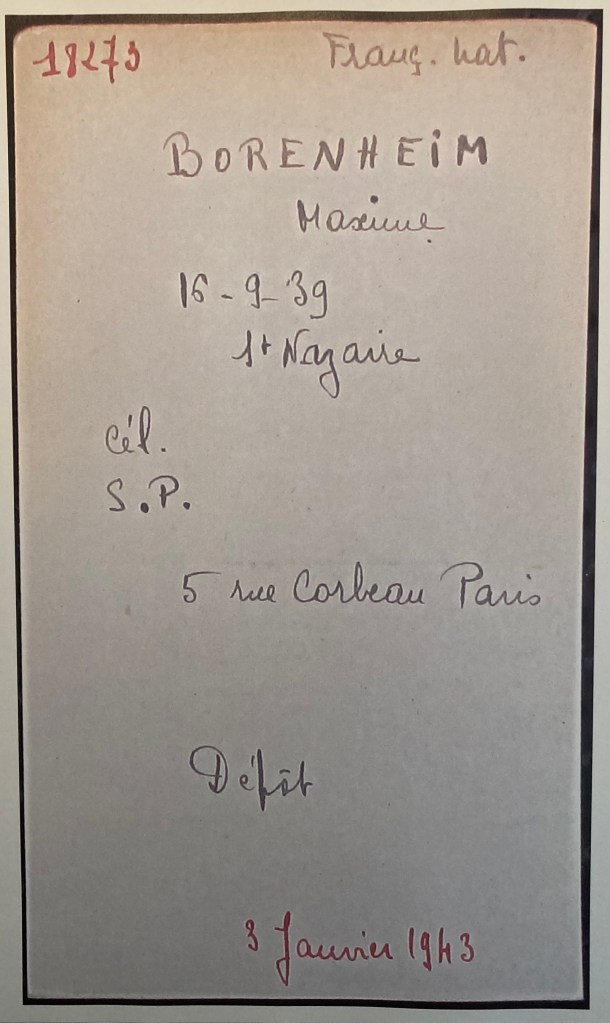 18273 Franç. nat.
BORENHEIM
Maxime
16-9-39
St Nazaire
Cél.
S.P.
5 rue Corbeau Paris
Dépôt
3 Janvier 1943